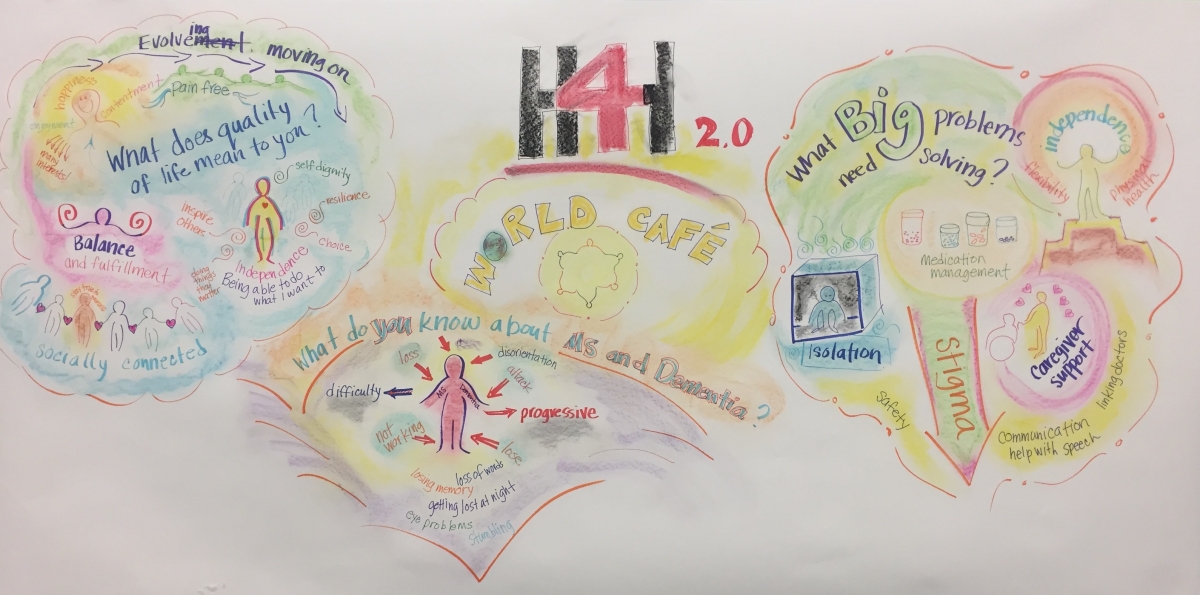 H4H 2.0
WORLD CAFÉ
Evolvement ing moving on
happiness
contentment
Pain free
enjoyment
many interests!
What does quality
of life mean to you?
self dignity
resilience
choice
inspire
others
Balance
and fulfillment
Independence
Being able to do
what I want to
doing
things
that
matter
socially connected
What do you know about MS and Dementia?
loss
disorientation
attack
difficulty
MS
Dementia
progressive
not
working
lose
loss of words
losing memory
getting lost at night
eye problems
Stumbling
What Big problems
need solving?
independence
flexibility
physical
health
medication
management
Isolation
stigma
caregiver
support
linking doctors
safety
communication
help with speech